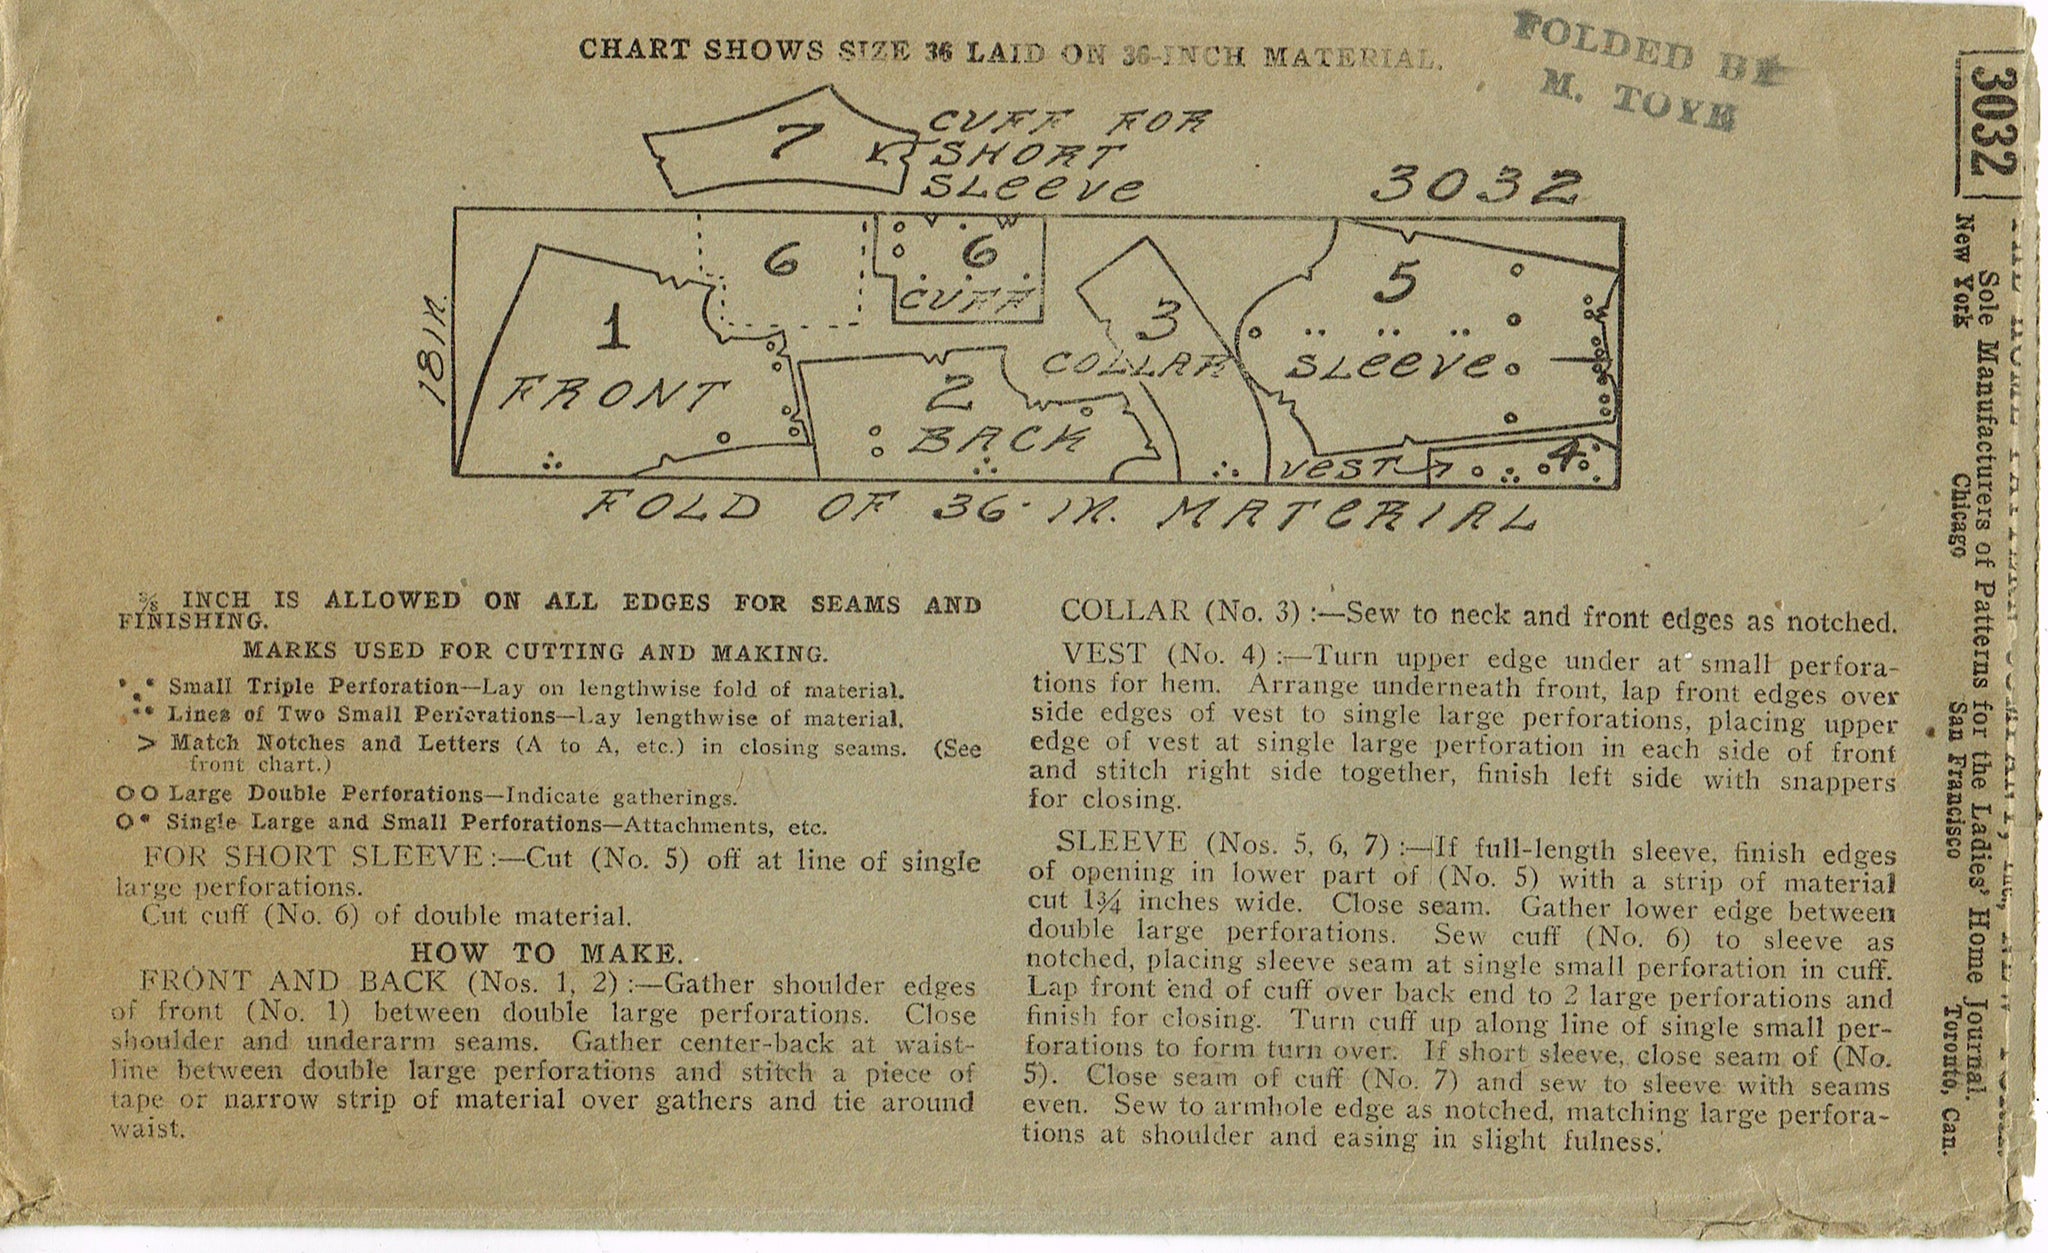 CHART SHOWS SIZE 36 LAID ON 36-INCH MATERIAL.
FOLDED BY
M. TOYE
7
K
CUFF FOR
SHORT
SLEEVE
3032
18 IN.
1
FRONT
6
6
CUFF
2
BACK
3
COLLAR
5
SLEEVE
VEST
4
FOLD OF 36-IN. MATERIAL
⅜ INCH IS ALLOWED ON ALL EDGES FOR SEAMS AND
FINISHING.
MARKS USED FOR CUTTING AND MAKING.
Small Triple Perforation—Lay on lengthwise fold of material.
Lines of Two Small Perforations—Lay lengthwise of material.
> Match Notches and Letters (A to A, etc.) in closing seams. (See
front chart.)
Large Double Perforations—Indicate gatherings.
Single Large and Small Perforations—Attachments, etc.
FOR SHORT SLEEVE:—Cut (No. 5) off at line of single
large perforations.
Cut cuff (No. 6) of double material.
HOW TO MAKE.
FRONT AND BACK (Nos. 1, 2) :—Gather shoulder edges
of front (No. 1) between double large perforations. Close
shoulder and underarm seams. Gather center-back at waist-
line between double large perforations and stitch a piece of
tape or narrow strip of material over gathers and tie around
waist.
COLLAR (No. 3) :—Sew to neck and front edges as notched.
VEST (No. 4) :—Turn upper edge under at small perfora-
tions for hem. Arrange underneath front, lap front edges over
side edges of vest to single large perforations, placing upper
edge of vest at single large perforation in each side of front
and stitch right side together, finish left side with snappers
for closing.
SLEEVE (Nos. 5, 6, 7) :—If full-length sleeve, finish edges
of opening in lower part of (No. 5) with a strip of material
cut 1¾ inches wide. Close seam. Gather lower edge between
double large perforations. Sew cuff (No. 6) to sleeve as
notched, placing sleeve seam at single small perforation in cuff.
Lap front end of cuff over back end to 2 large perforations and
finish for closing. Turn cuff up along line of single small per-
forations to form turn over. If short sleeve, close seam of (No.
5). Close seam of cuff (No. 7) and sew to sleeve with seams
even. Sew to armhole edge as notched, matching large perfora-
tions at shoulder and easing in slight fulness.
3032
Sole Manufacturers of Patterns for the Ladies' Home Journal.
New York Chicago San Francisco Toronto, Can.